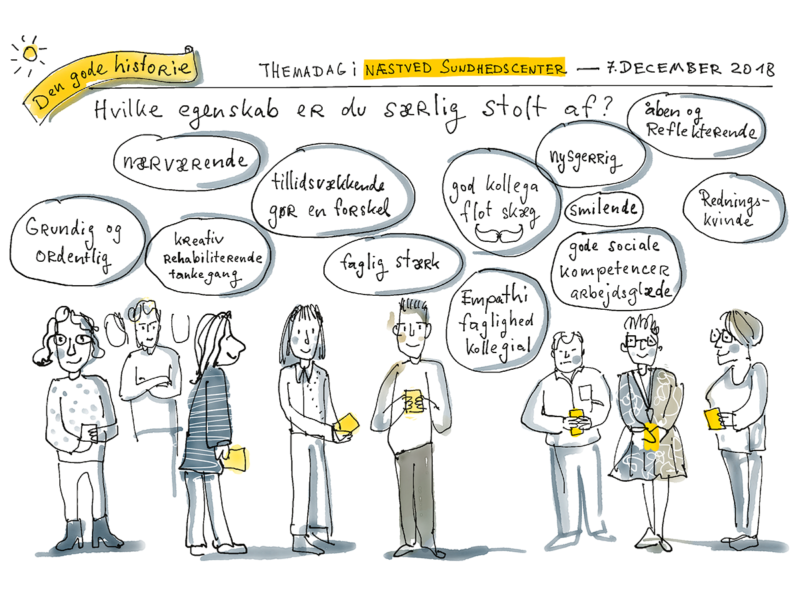 Den gode historie
THEMADAG i NÆSTVED SUNDHEDSCENTER — 7. DECEMBER 2018
Hvilke egenskab er du særlig stolt af?
NÆRVÆRENDE
tillidsvækkende
gør en forskel
god kollega
flot skæg
nysgerrig
åben og
Reflekterende
smilende
Rednings-
kvinde
Grundig og
ordentlig
kreativ
Rehabiliterende
tankegang
faglig stærk
Empathi
faglighed
kollegial
gode sociale
kompetencer
arbejdsglæde